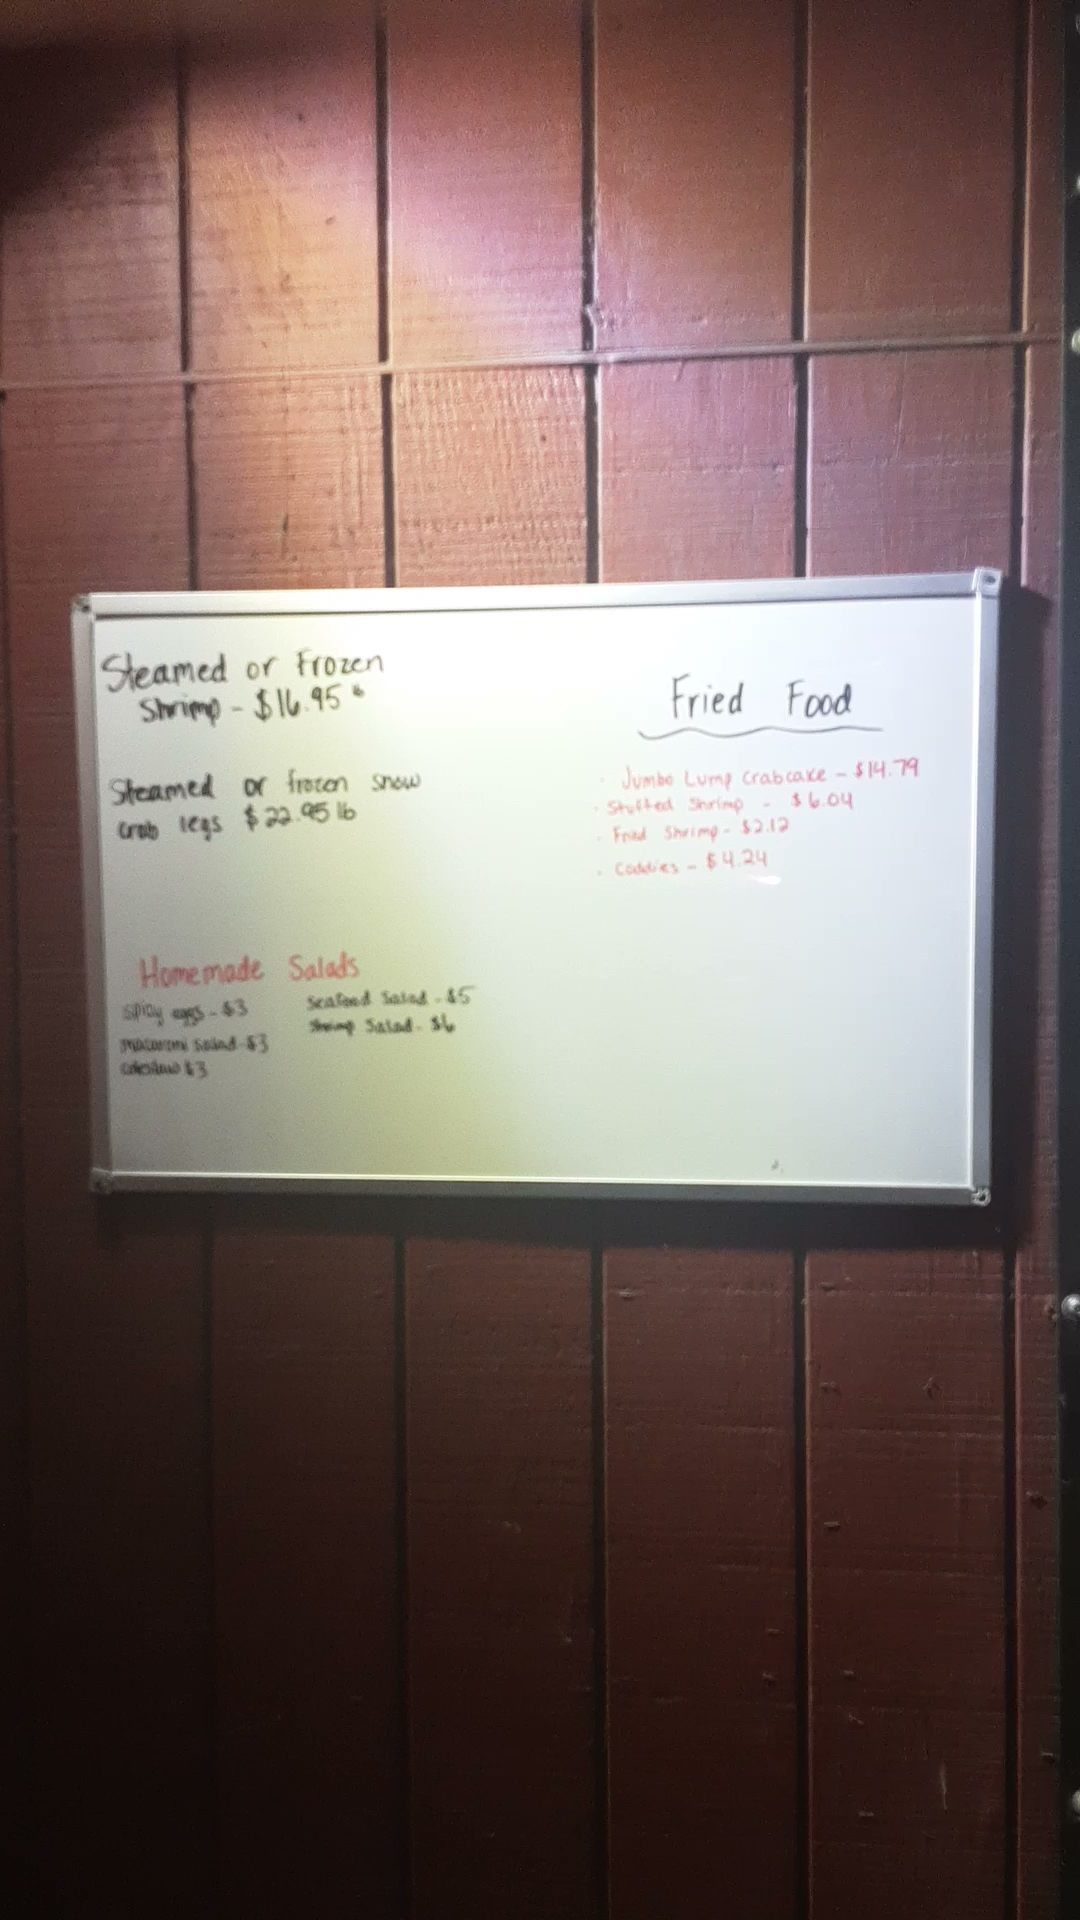 Steamed or Frozen
Shrimp - $16.95
Steamed or frozen snow
crab legs $22.95 lb
Homemade Salads
Spicy eggs - $3
macaroni salad - $3
coleslaw $3
Seafood Salad - $5
Shrimp Salad - $6
Fried Food
· Jumbo Lump Crabcake - $14.79
· Stuffed Shrimp - $6.04
· Fried Shrimp - $2.12
· Coddies - $4.24